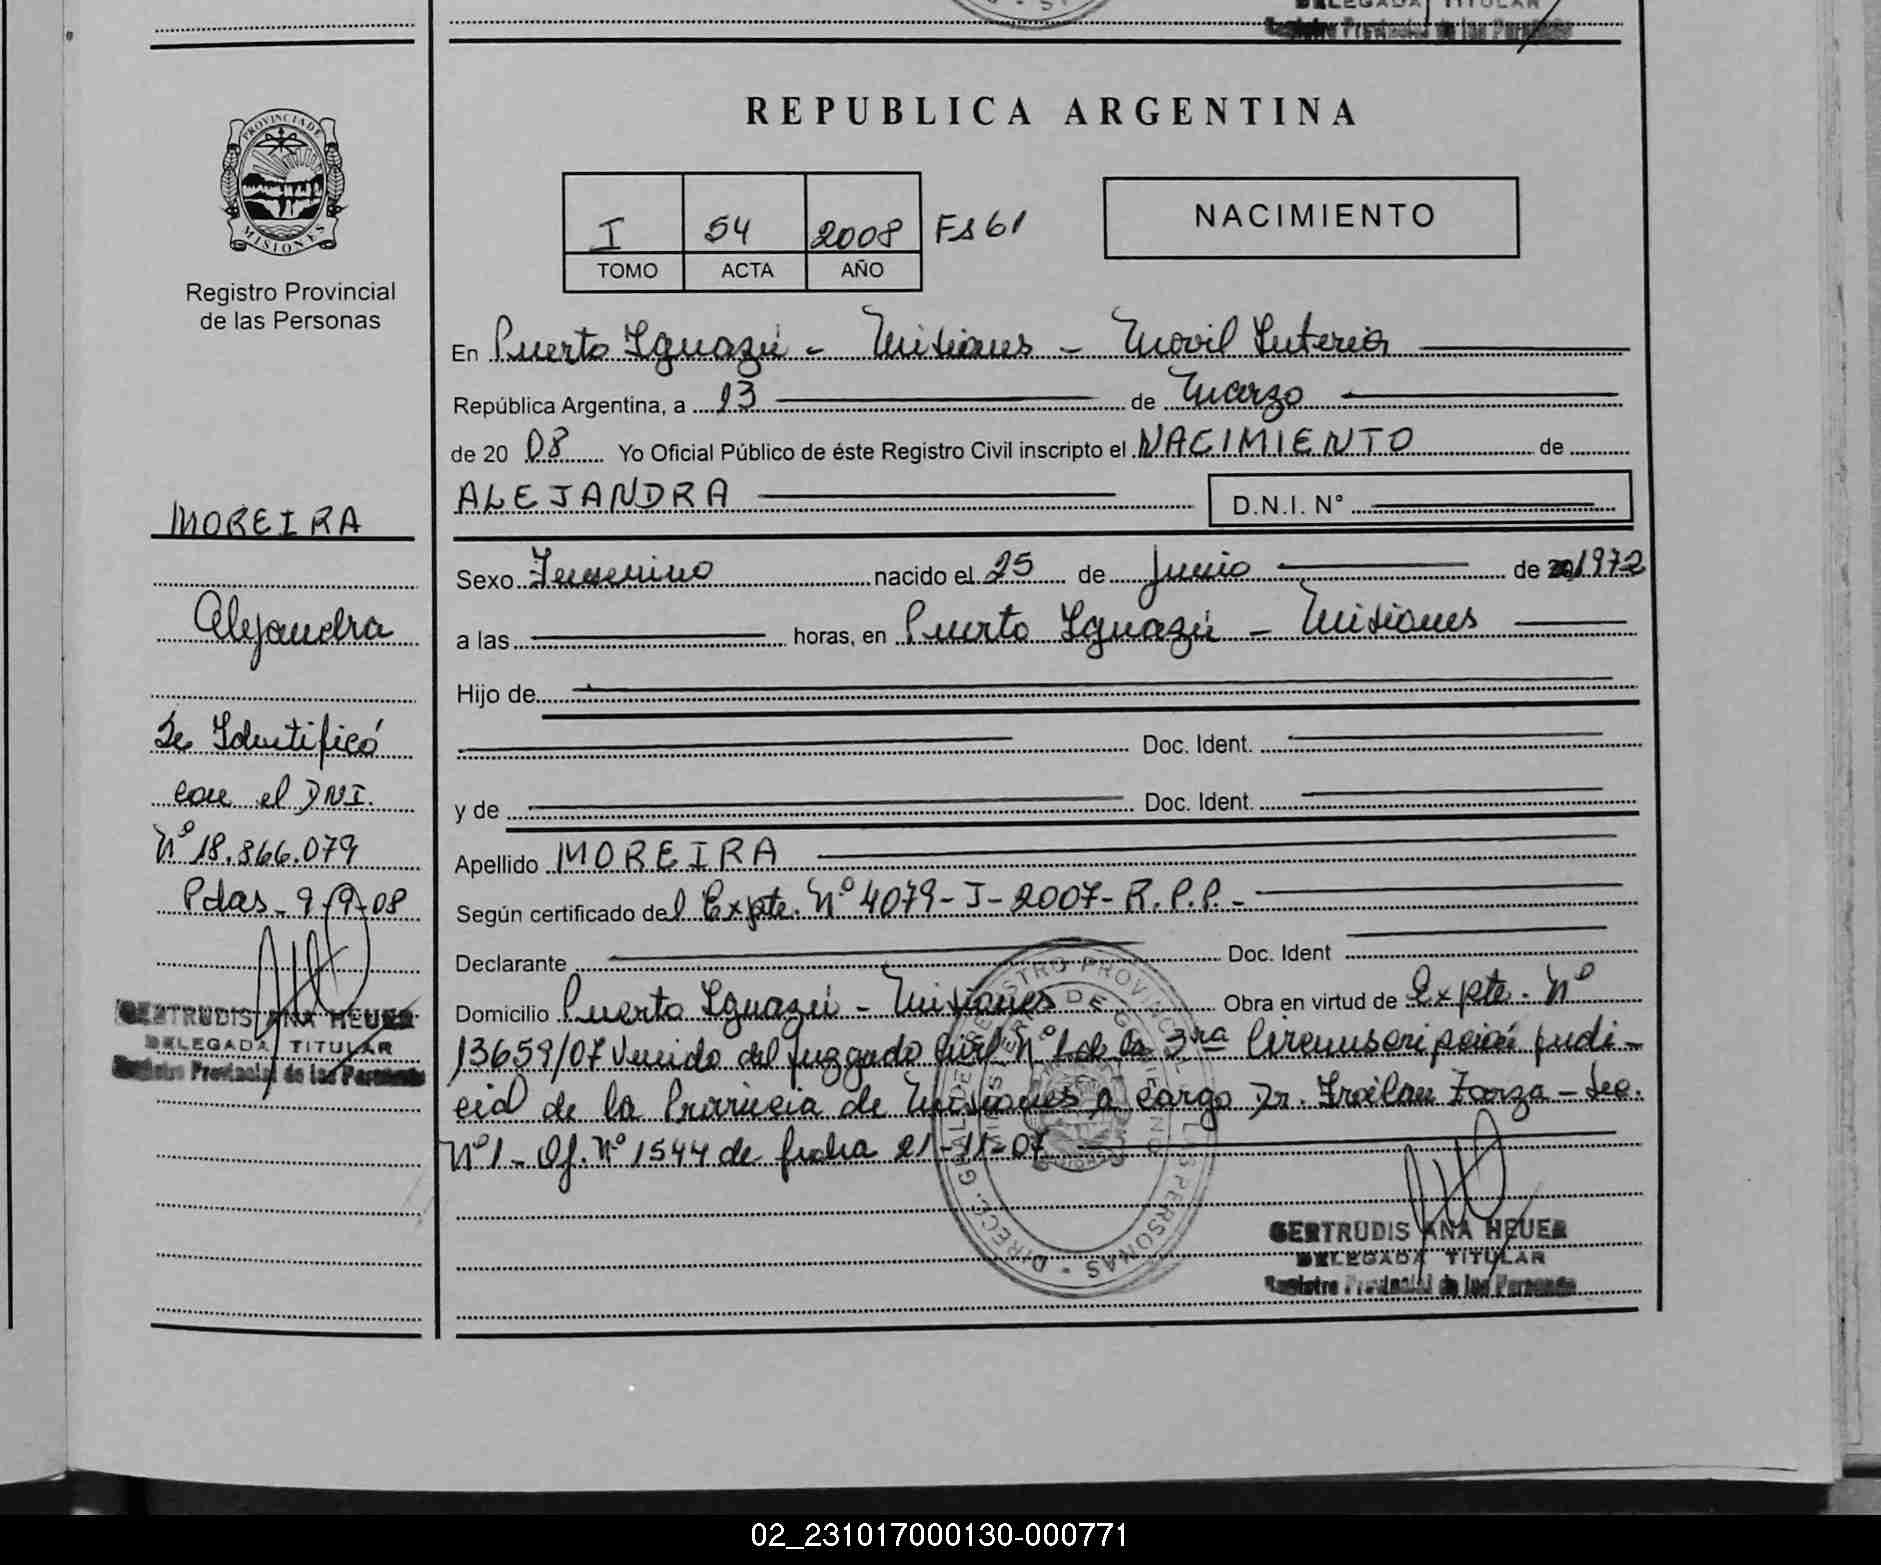 DELEGADA TITULAR
Registro Provincial de las Personas
REPUBLICA ARGENTINA
PROVINCIA DE
MISIONES
Registro Provincial
de las Personas
I 54 2008 Fs 61
TOMO ACTA AÑO
NACIMIENTO
En Puerto Iguazú - Misiones - Movil Interior
República Argentina, a 13 de Marzo
de 20 08 Yo Oficial Público de éste Registro Civil inscripto el NACIMIENTO de
ALEJANDRA D.N.I. N°
Sexo Femenino nacido el 25 de Junio de 20 1972
a las horas, en Puerto Iguazú - Misiones
Hijo de
Doc. Ident.
y de Doc. Ident.
Apellido MOREIRA
Según certificado del Expte. Nº 4079-J-2007-R.P.P.-
Declarante Doc. Ident
Domicilio Puerto Iguazú - Misiones Obra en virtud de Expte. Nº
13659/07 Venido del Juzgado Civil Nº 1 de la 3ra Circunscripción Judi-
cial de la Provincia de Misiones a cargo Dr. Froilan Zarza - Sec.
Nº 1 - Of. Nº 1544 de fecha 21-11-07
GERTRUDIS ANA HEUER
DELEGADA TITULAR
Registro Provincial de las Personas
MOREIRA
Alejandra
Se Identificó
con el DNI.
Nº 18.866.079
Pdas - 9-9-08
GERTRUDIS ANA HEUER
DELEGADA TITULAR
Registro Provincial de las Personas
DIRECC. GRAL DE REGISTRO PROVINCIAL DE LAS PERSONAS
MINISTERIO DE GOBIERNO
MISIONES
02_231017000130-000771